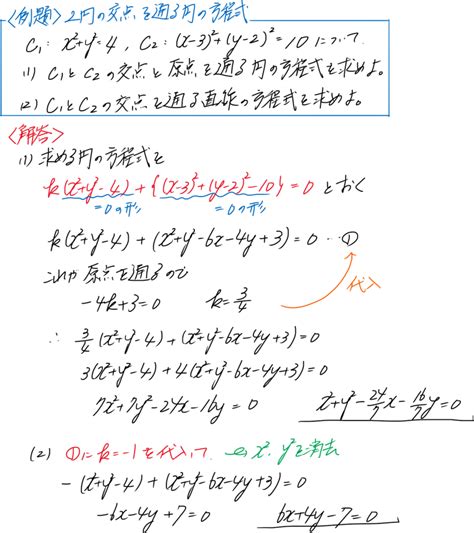 〈例題〉2円の交点を通る円の方程式
C₁: x²+y²=4, C₂: (x-3)²+(y-2)²=10 について
(1) C₁とC₂の交点と原点を通る円の方程式を求めよ。
(2) C₁とC₂の交点を通る直線の方程式を求めよ。
〈解答〉
(1) 求める円の方程式を
k(x²+y²-4) + {(x-3)²+(y-2)²-10} = 0 とおく
=0の形 =0の形
k(x²+y²-4) + (x²+y²-6x-4y+3) = 0 …①
これが原点を通るので
-4k+3=0 k=3/4
代入
∴ 3/4(x²+y²-4) + (x²+y²-6x-4y+3)=0
3(x²+y²-4) + 4(x²+y²-6x-4y+3)=0
7x²+7y²-24x-16y=0 x²+y²-24/7x-16/7y=0
(2) ①にk=-1を代入して → x², y²を消去
-(x²+y²-4) + (x²+y²-6x-4y+3)=0
-6x-4y+7=0 6x+4y-7=0